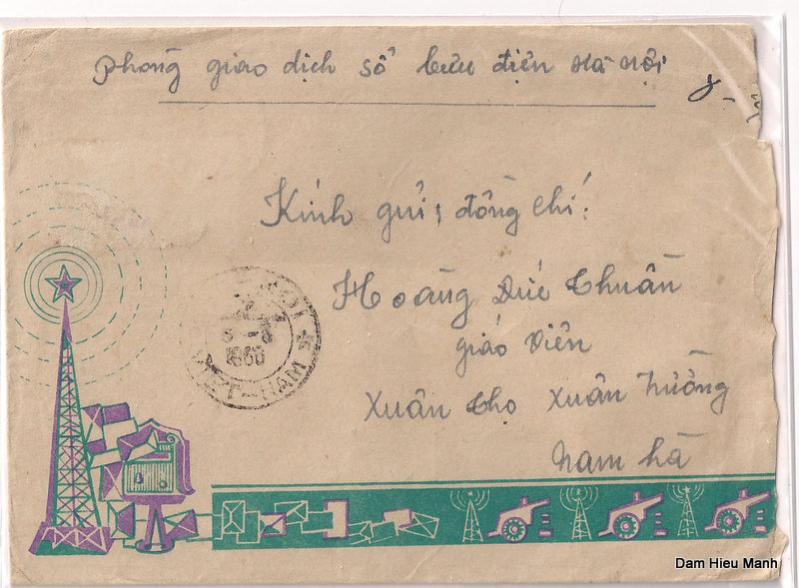 Phòng giao dịch số bưu điện Hà Nội
Kính gửi, đồng chí:
Hoàng Đức Thuần
giáo viên
Xuân Thọ Xuân Trường
Nam Hà
VIET-NAM
Dam Hieu Manh